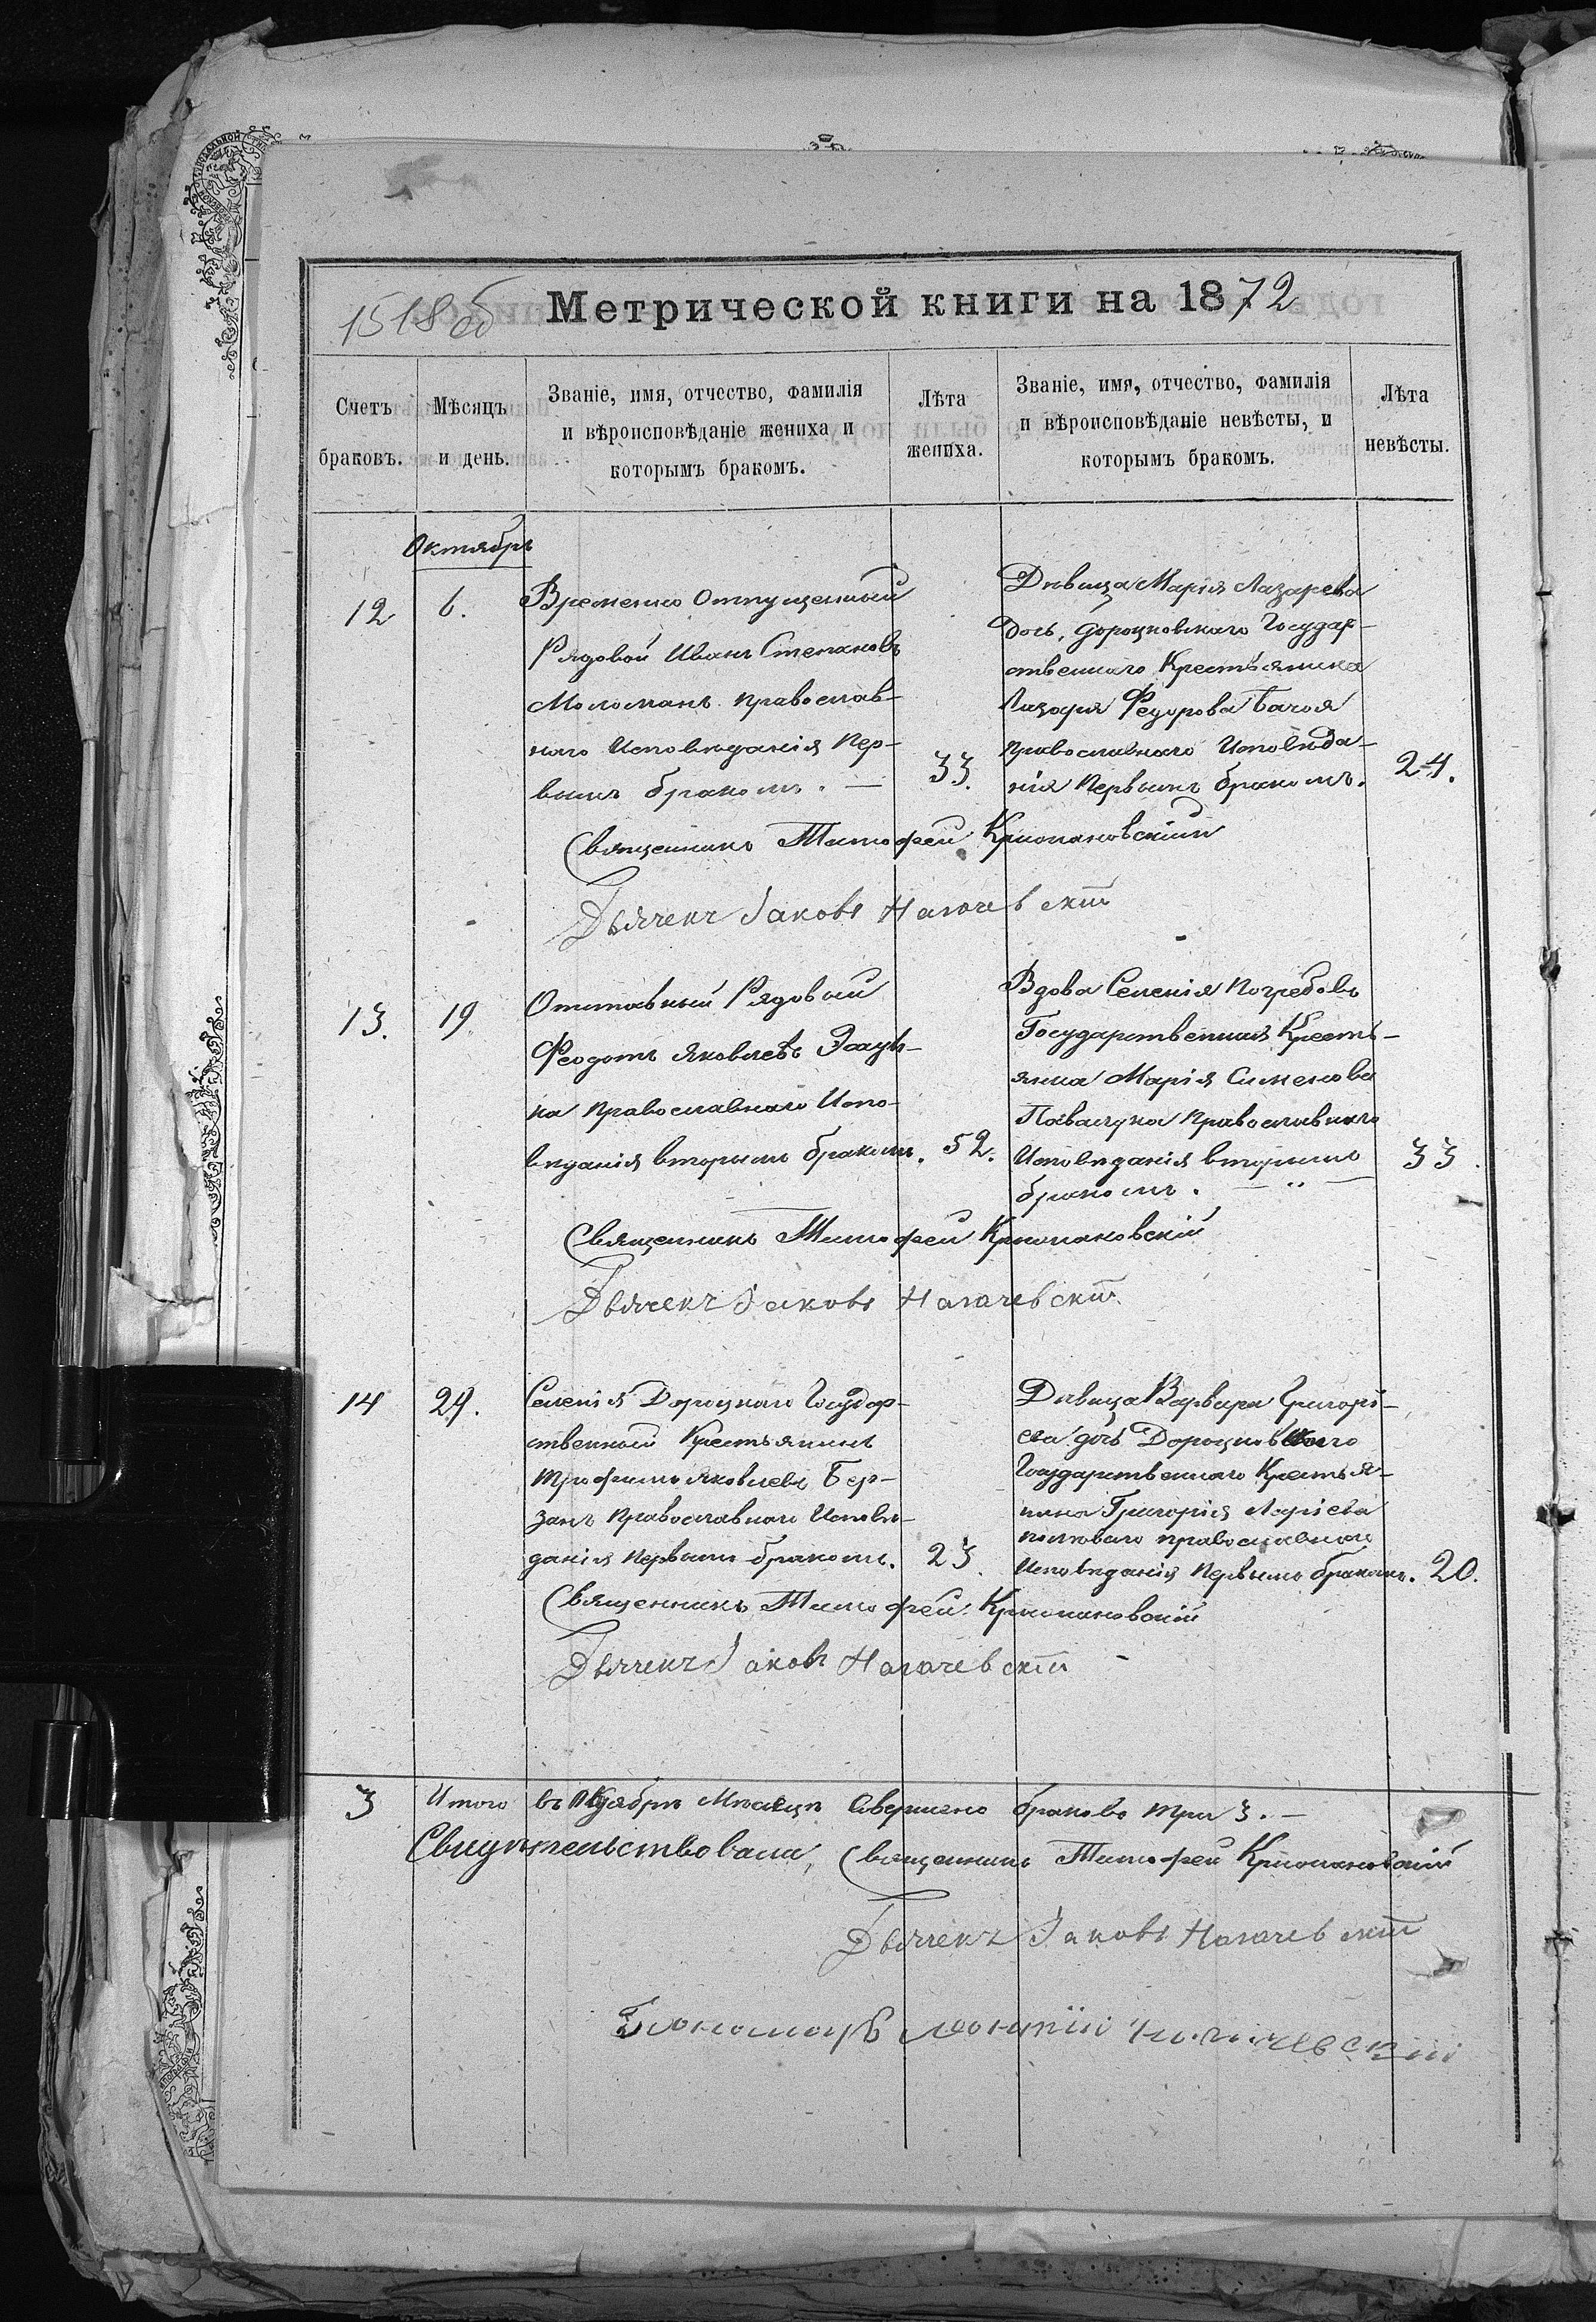 1518об Метрической книги на 1872
Счетъ браковъ.
Мѣсяцъ и день.
Званіе, имя, отчество, фамилія
и вѣроисповѣданіе жениха и
которымъ бракомъ.
Лѣта
жениха.
Званіе, имя, отчество, фамилія
и вѣроисповѣданіе невѣсты, и
которымъ бракомъ.
Лѣта
невѣсты.
Октябрь
12 6.
Временно Отпущенный
Рядовой Иванъ Степановъ
Моломанъ православ-
наго Исповѣданія Пер-
вымъ бракомъ. —
33.
Дѣвица Марія Лазарева
дочь, Дороцковскаго Государ-
ственнаго Крестьянина
Лазаря Федорова
православнаго Исповѣда-
нія Первымъ бракомъ.
24.
Священникъ Тимофей Крижановскій
Дьячекъ Іаковъ Нагачевскій
13. 19.
Отставный Рядовый
Феодотъ Яковлевъ
на Православнаго Испо-
вѣданія вторымъ бракомъ.
52.
Вдова Селенія Погребовъ
Государственная Кресть-
янка Марія Сименова
православнаго
Исповѣданія вторымъ
бракомъ. — „ —
33.
Священникъ Тимофей Крижановскій
Дьячекъ Іаковъ Нагачевскій
14 29.
Селенія Дороцкаго Государ-
ственный Крестьянинъ
Трофимъ Яковлевъ Бер-
занъ Православнаго Исповѣ-
данія Первымъ бракомъ.
23.
Дѣвица Варвара Григорі-
ева дочь Дороцковскаго
Государственнаго Крестья-
нина Григорія
православнаго
Исповѣданія Первымъ бракомъ.
20.
Священникъ Тимофей Крижановскій
Дьячекъ Іаковъ Нагачевскій
3 Итого въ Октябрѣ Мѣсяцѣ Совершено браковъ три 3. —
Свидѣтельствовали, Священникъ Тимофей Крижановскій
Дьячекъ Іаковъ Нагачевскій
Пономарь Нагачевскій